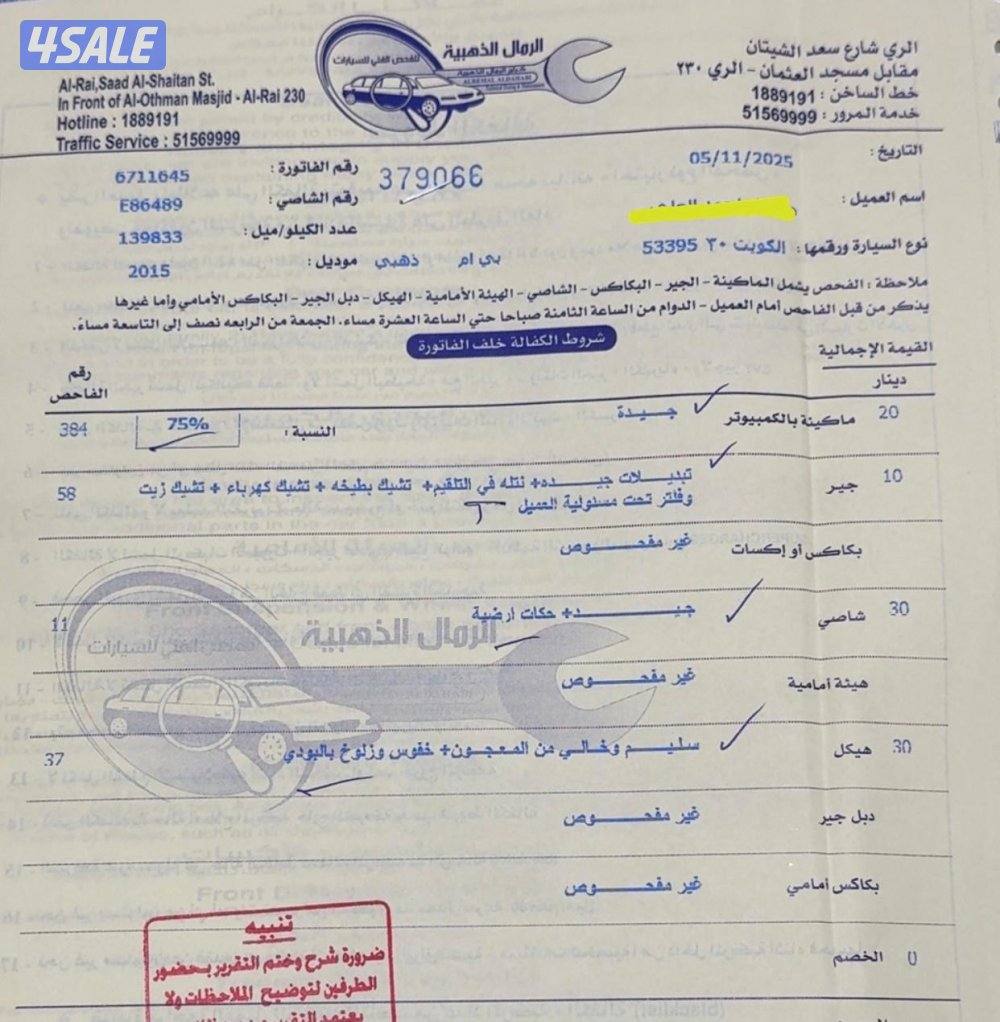 4SALE
الري شارع سعد الشيتان
مقابل مسجد العثمان - الري ٢٣٠
خط الساخن : 1889191
خدمة المرور : 51569999
الرمال الذهبية
للفحص الفني للسيارات
ALREMAL ALDAHABI
Al-Rai,Saad Al-Shaitan St.
In Front of Al-Othman Masjid - Al-Rai 230
Hotline : 1889191
Traffic Service : 51569999
التاريخ : 05/11/2025
379066
رقم الفاتورة : 6711645
اسم العميل :
رقم الشاصي : E86489
عدد الكيلو/ميل : 139833
نوع السيارة ورقمها : الكويت ٢٠ 53395
بي ام ذهبي
موديل : 2015
ملاحظة : الفحص يشمل الماكينة - الجير - البكاكس - الشاصي - الهيئة الأمامية - الهيكل - دبل الجير - البكاكس الأمامي وأما غيرها
يذكر من قبل الفاحص أمام العميل - الدوام من الساعة الثامنة صباحا حتي الساعة العشرة مساء. الجمعة من الرابعه نصف إلى التاسعة مساءً.
شروط الكفالة خلف الفاتورة
القيمة الإجمالية
دينار
رقم
الفاحص
20 ماكينة بالكمبيوتر جـيـدة النسبة : 75% 384
10 جير تبديـــلات جيـــده+ نتله في التلقيم+ تشيك بطيخه + تشيك كهرباء + تشيك زيت 58
وفلتر تحت مسئولية العميل
بكاكس أو إكسات غير مفحـــوص
30 شاصي جيـــد+ حكات ارضية 11
الرمال الذهبية
للفحص الفني للسيارات
هيئة أمامية غير مفحـــوص
30 هيكل سليـــم وخـالي من المعجـون+ خفوس وزلوخ بالبودي 37
دبل جير غير مفحـــوص
بكاكس أمامي غير مفحـــوص
0 الخصم
تنبيه
ضرورة شرح وختم التقرير بحضور
الطرفين لتوضيح الملاحظات ولا